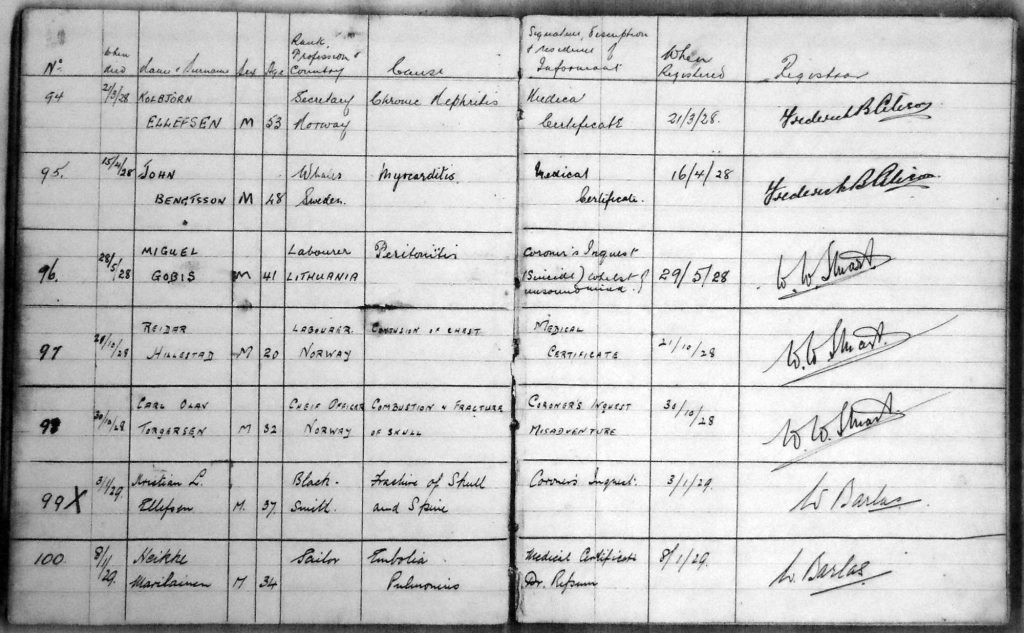 No. When died Name & Surname Sex Age Rank, Profession & Country Cause Signature, description & residence of Informant When Registered Registrar
94 21/3/28 KOLBJORN Secretary Chronic Nephritis Medical
ELLEFSEN M 53 Norway Certificate 21/3/28.
95. 15/4/28 JOHN Whaler Myocarditis. Medical 16/4/28
BENGTSSON M 48 Sweden. Certificate.
96. 28/5/28 MIGUEL Labourer Peritonitis Coroner's Inquest
GOBIS M 41 LITHUANIA (Suicide) whilst of 29/5/28 W. W. Stuart
unsound mind.
97 20/10/28 REIDAR LABOURER. CONTUSION OF CHEST MEDICAL 21/10/28
HILLESTAD M 20 NORWAY CERTIFICATE W. W. Stuart.
98 30/10/28 CARL OLAV CHEIF OFFICER COMBUSTION & FRACTURE CORONER'S INQUEST 30/10/28
TORGERSEN M 32 NORWAY OF SKULL MISADVENTURE W. W. Stuart
99 X 3/1/29. Kristian L. Black- Fracture of Skull Coroner's Inquest. 3/1/29.
Ellefsen M. 37. Smith. and Spine W Barlas
100 8/1/29. Heikke Sailor Embolia Medical Certificate 8/1/29.
Marilainen M 34 Pulmonis Dr. W. Barlas